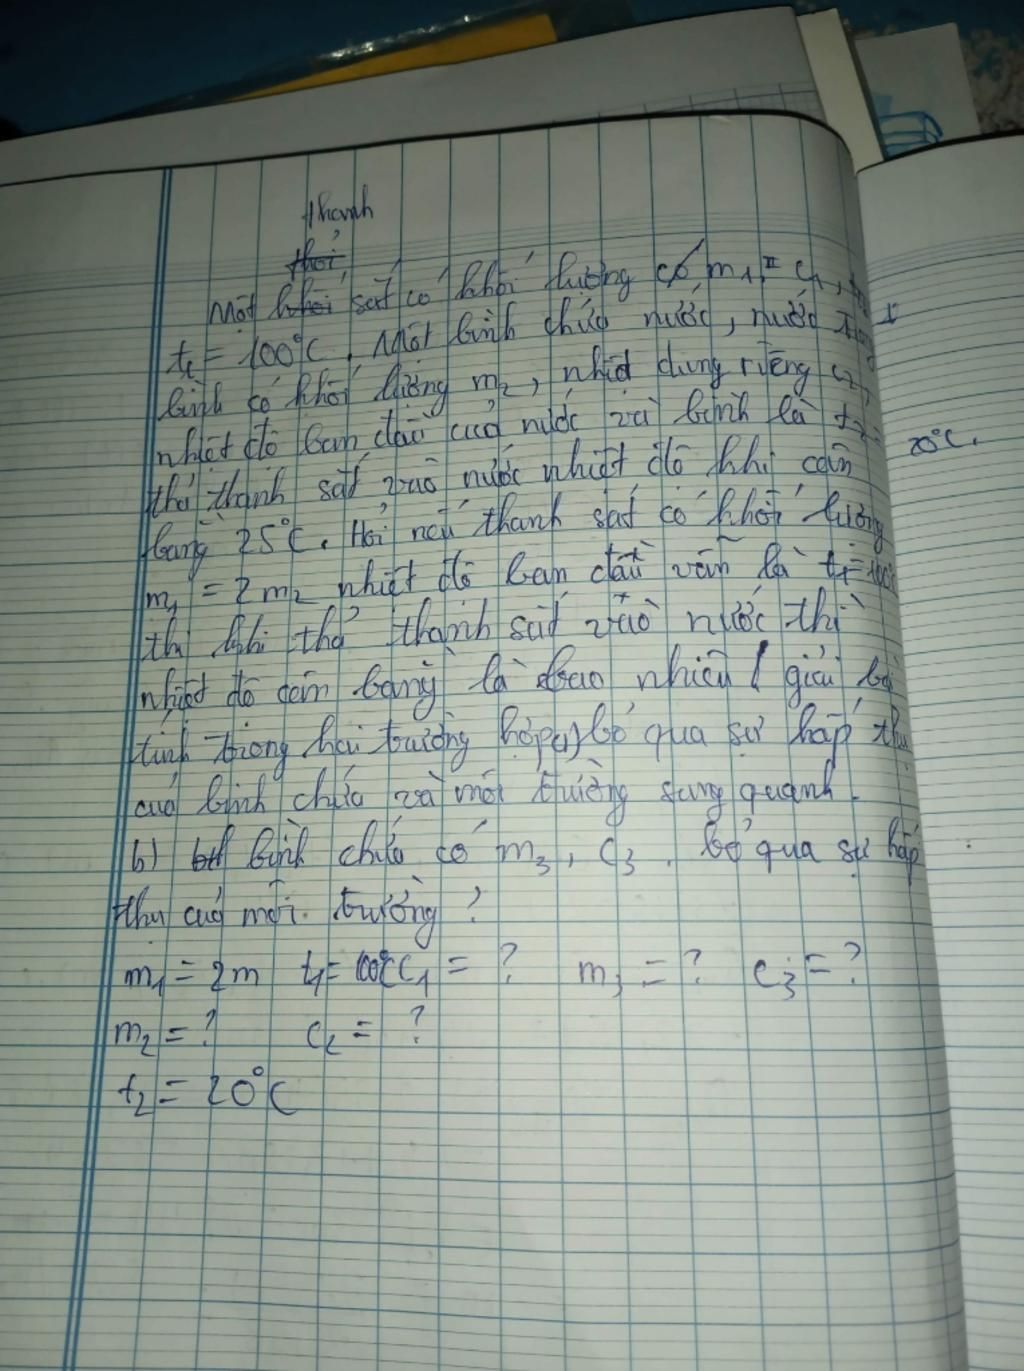 thanh
thỏi
Một khối sắt có khối lượng có m1 = c1,
t1 = 100°C, Một bình chứa nước, nước trong
bình có khối lượng m2, nhiệt dung riêng c2,
nhiệt độ ban đầu của nước và bình là t2 = 20°C.
thả thanh sắt vào nước nhiệt độ khi cân
bằng 25°C. Hỏi nếu thanh sắt có khối lượng
m1 = 2m2 nhiệt độ ban đầu vẫn là t1 = 100°C
thì khi thả thanh sắt vào nước thì
nhiệt độ cân bằng là bao nhiêu ( giải bài
tính trong hai trường hợp a) bỏ qua sự hấp thu
của bình chứa và môi trường sung quanh.
b) bình chứa có m3, c3. bỏ qua sự hấp
thu của môi trường ?
m1 = 2m t1 = 100°C C1 = ? m3 = ? c3 = ?
m2 = ? c2 = ?
t2 = 20°C